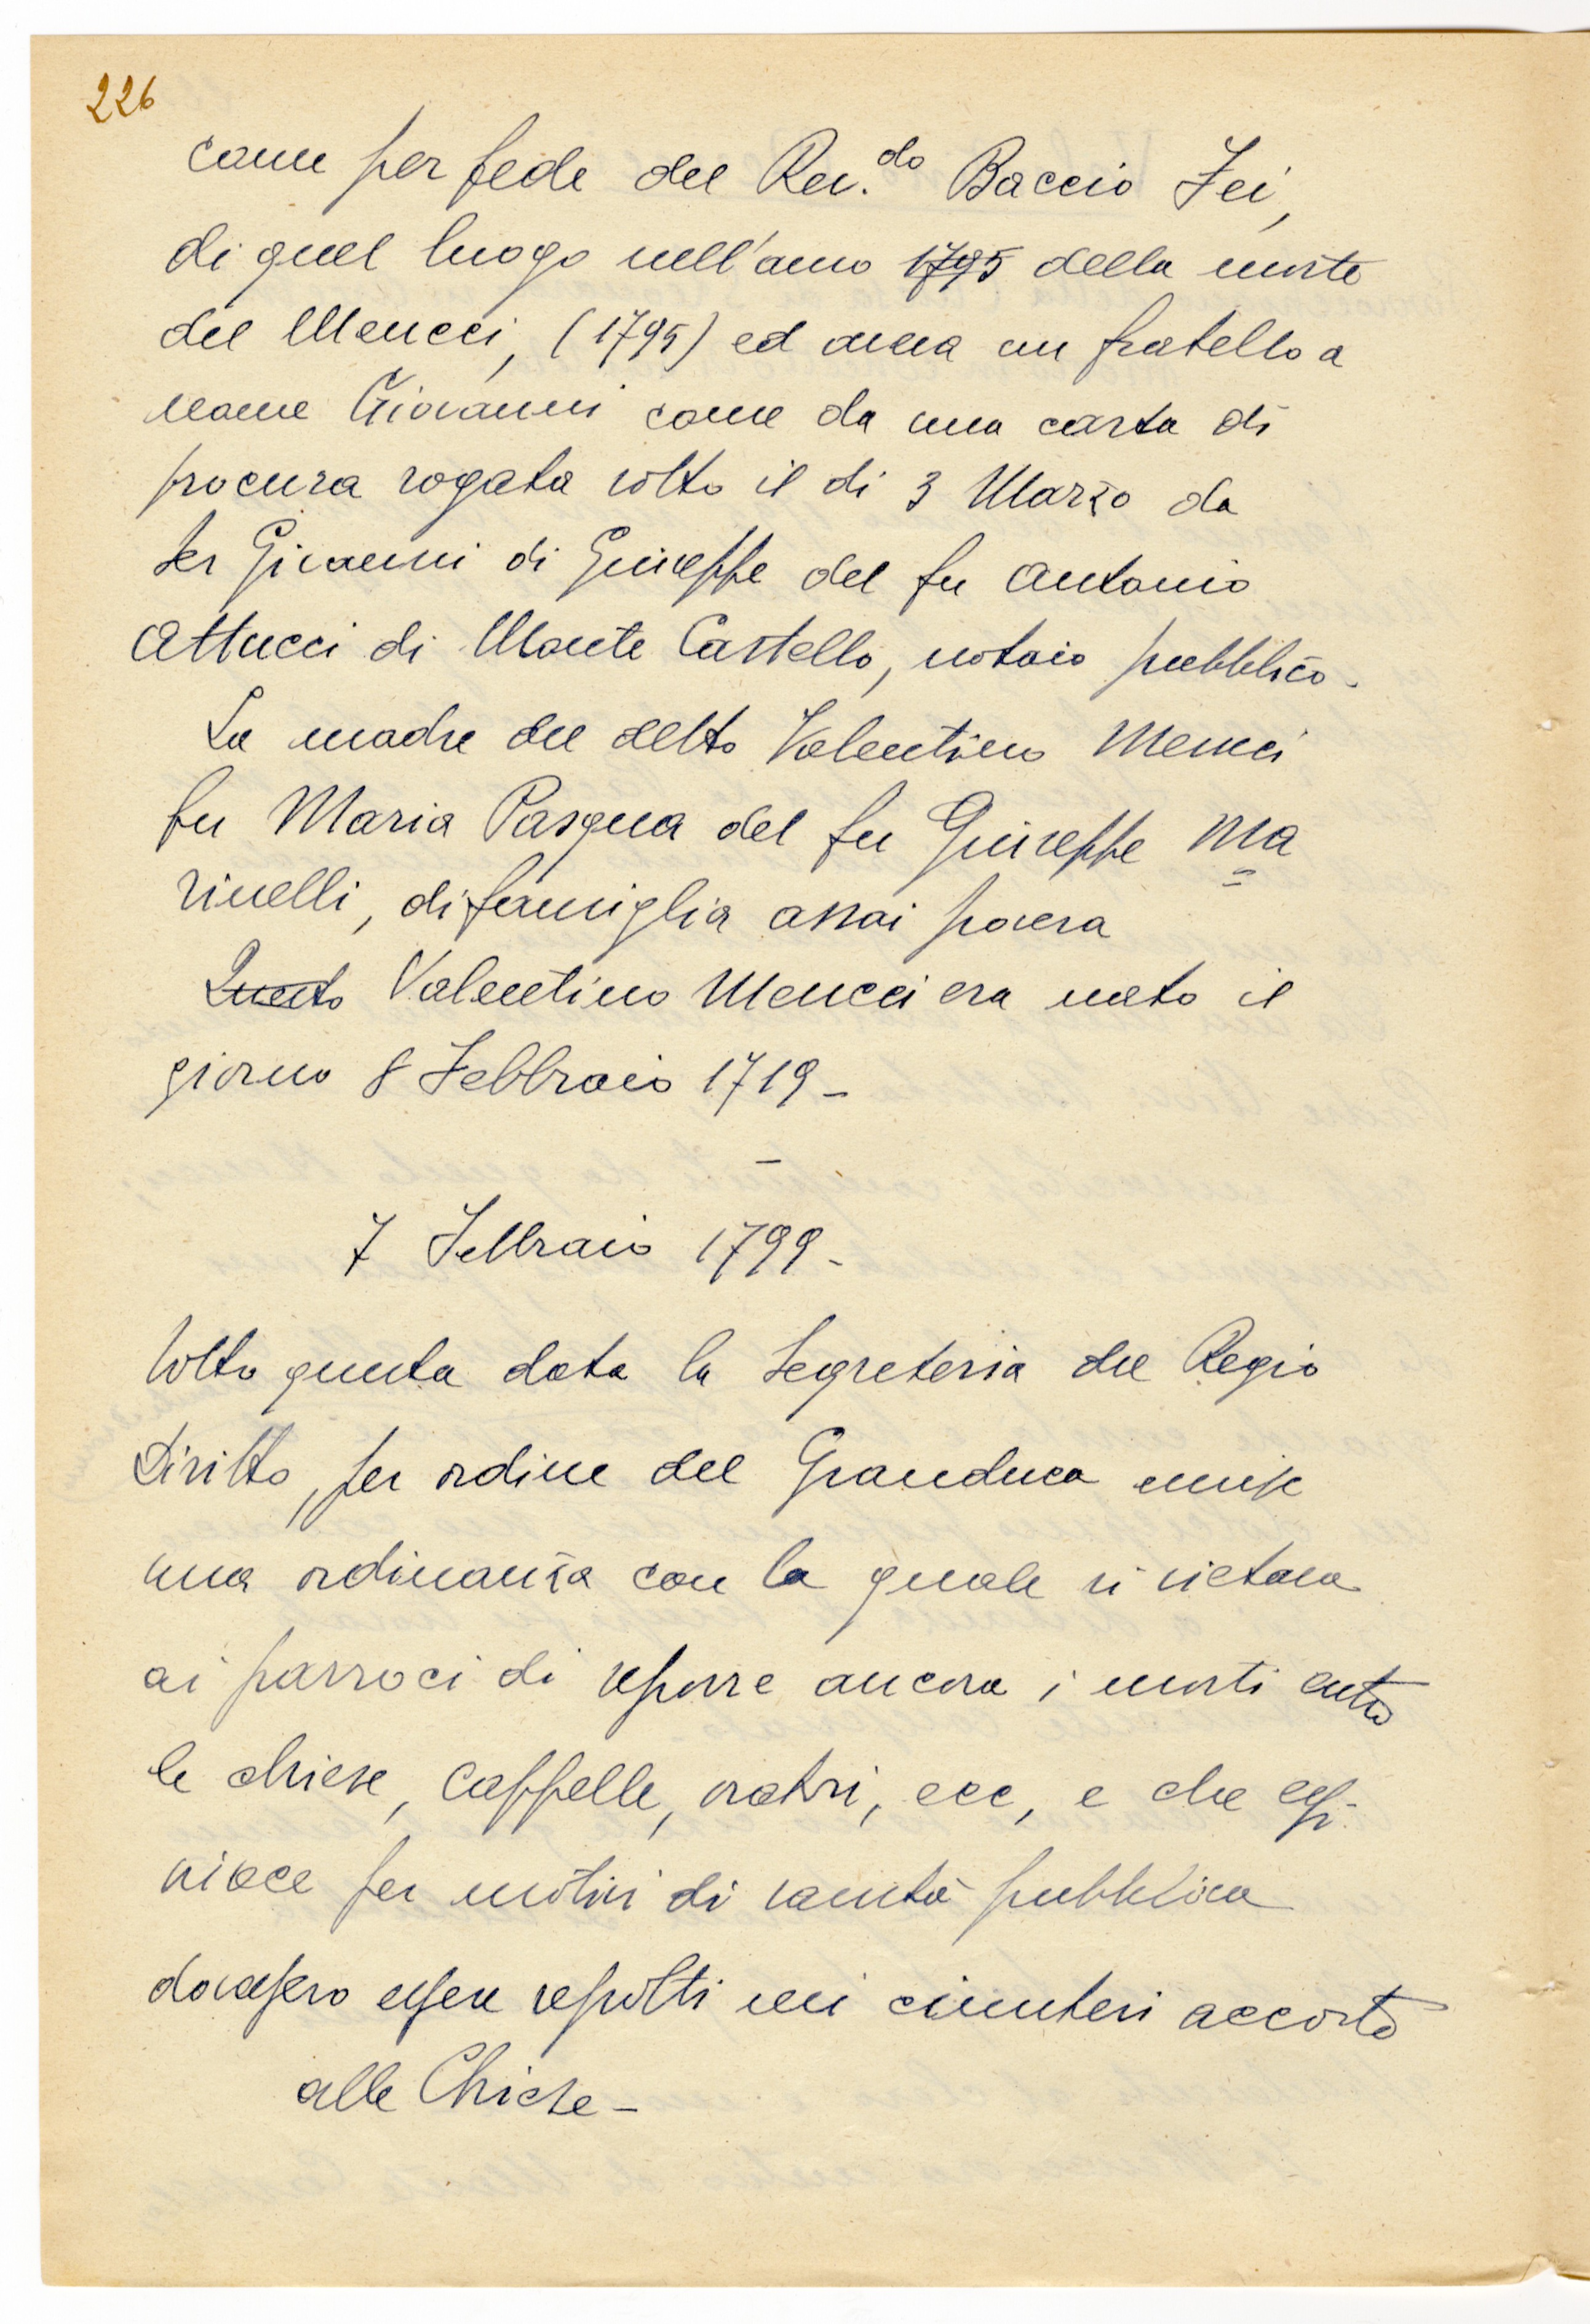 226
come per fede del Rev.do Baccio Fei,
di quel luogo nell'anno 1795 della morte
del Meucci, (1795) ed aveva un fratello a
nome Giovanni come da una carta di
procura rogata sotto il di 3 Marzo da
Ser Giovanni di Giuseppe del fu Antonio
Attucci di Monte Castello, notaio pubblico -
La madre del detto Valentino Meucci
fu Maria Pasqua del fu Giuseppe Ma=
rinelli, di famiglia assai povera
Questo Valentino Meucci era nato il
giorno 8 Febbraio 1719 -
-
7 Febbraio 1799 -
Sotto questa data la Segreteria del Regio
Diritto, per ordine del Granduca emise
una ordinanza con la quale si vietava
ai parroci di seporre ancora i morti entro
le chiese, cappelle, oratori, ecc, e che
invece per motivi di sanità pubblica
dovessero essere sepolti nei cimiteri accosto
alle Chiese -